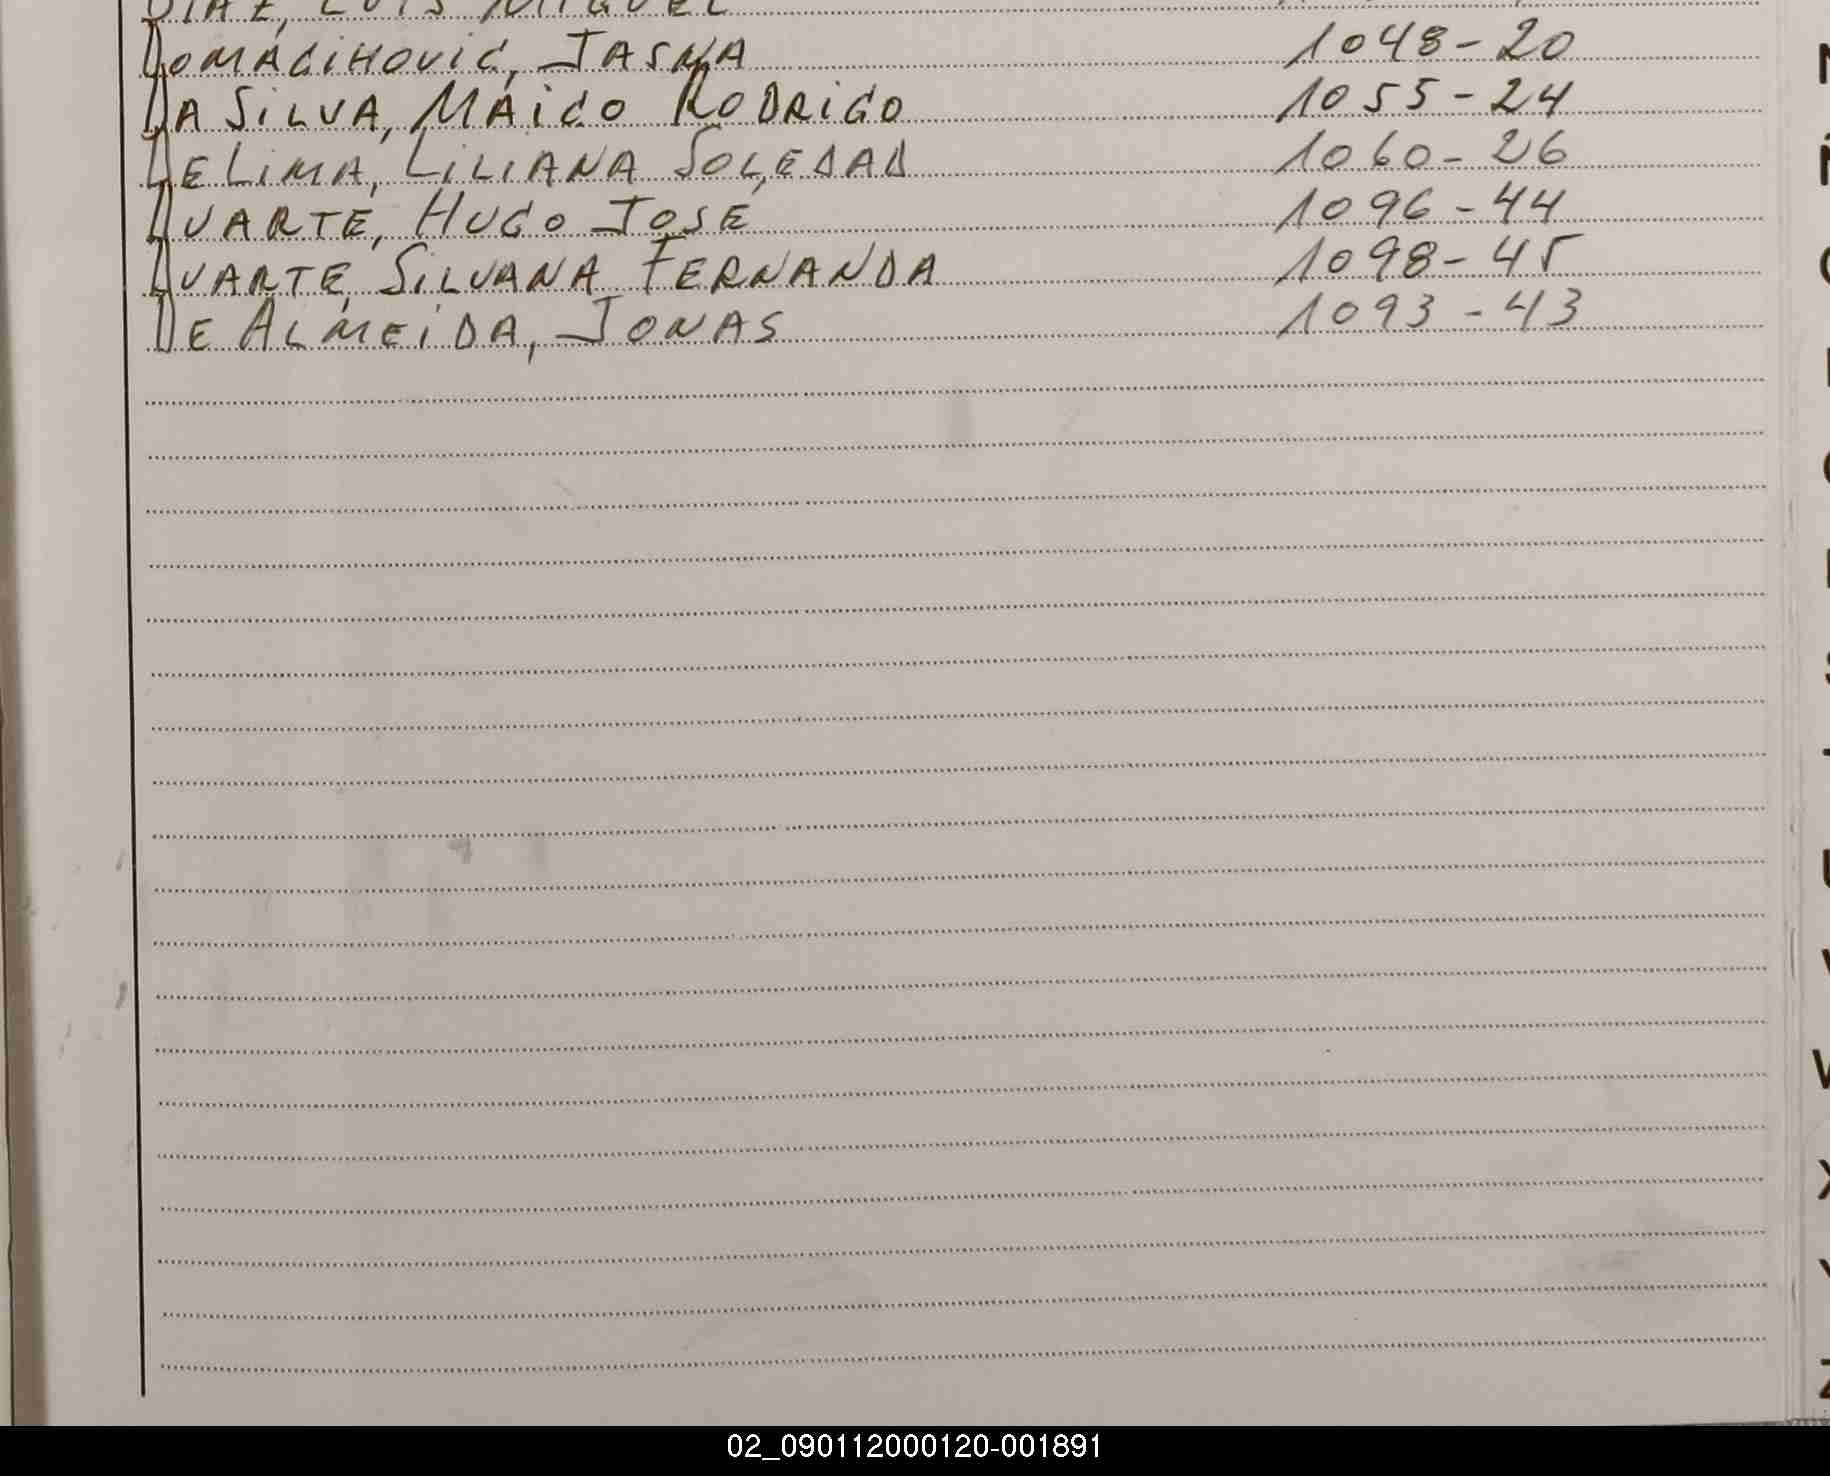 DIAZ, LUIS MIGUEL
DOMACIHOVIC, JASNA 1048-20
DA SILVA, MAICO RODRIGO 1055-24
DE LIMA, LILIANA SOLEDAD 1060-26
DUARTE, HUGO JOSE 1096-44
DUARTE, SILVANA FERNANDA 1098-45
DE ALMEIDA, JONAS 1093-43
U
X
Z
02_090112000120-001891